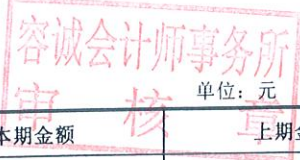 容诚会计师事务所
审核章
单位：元
本期金额
上期金